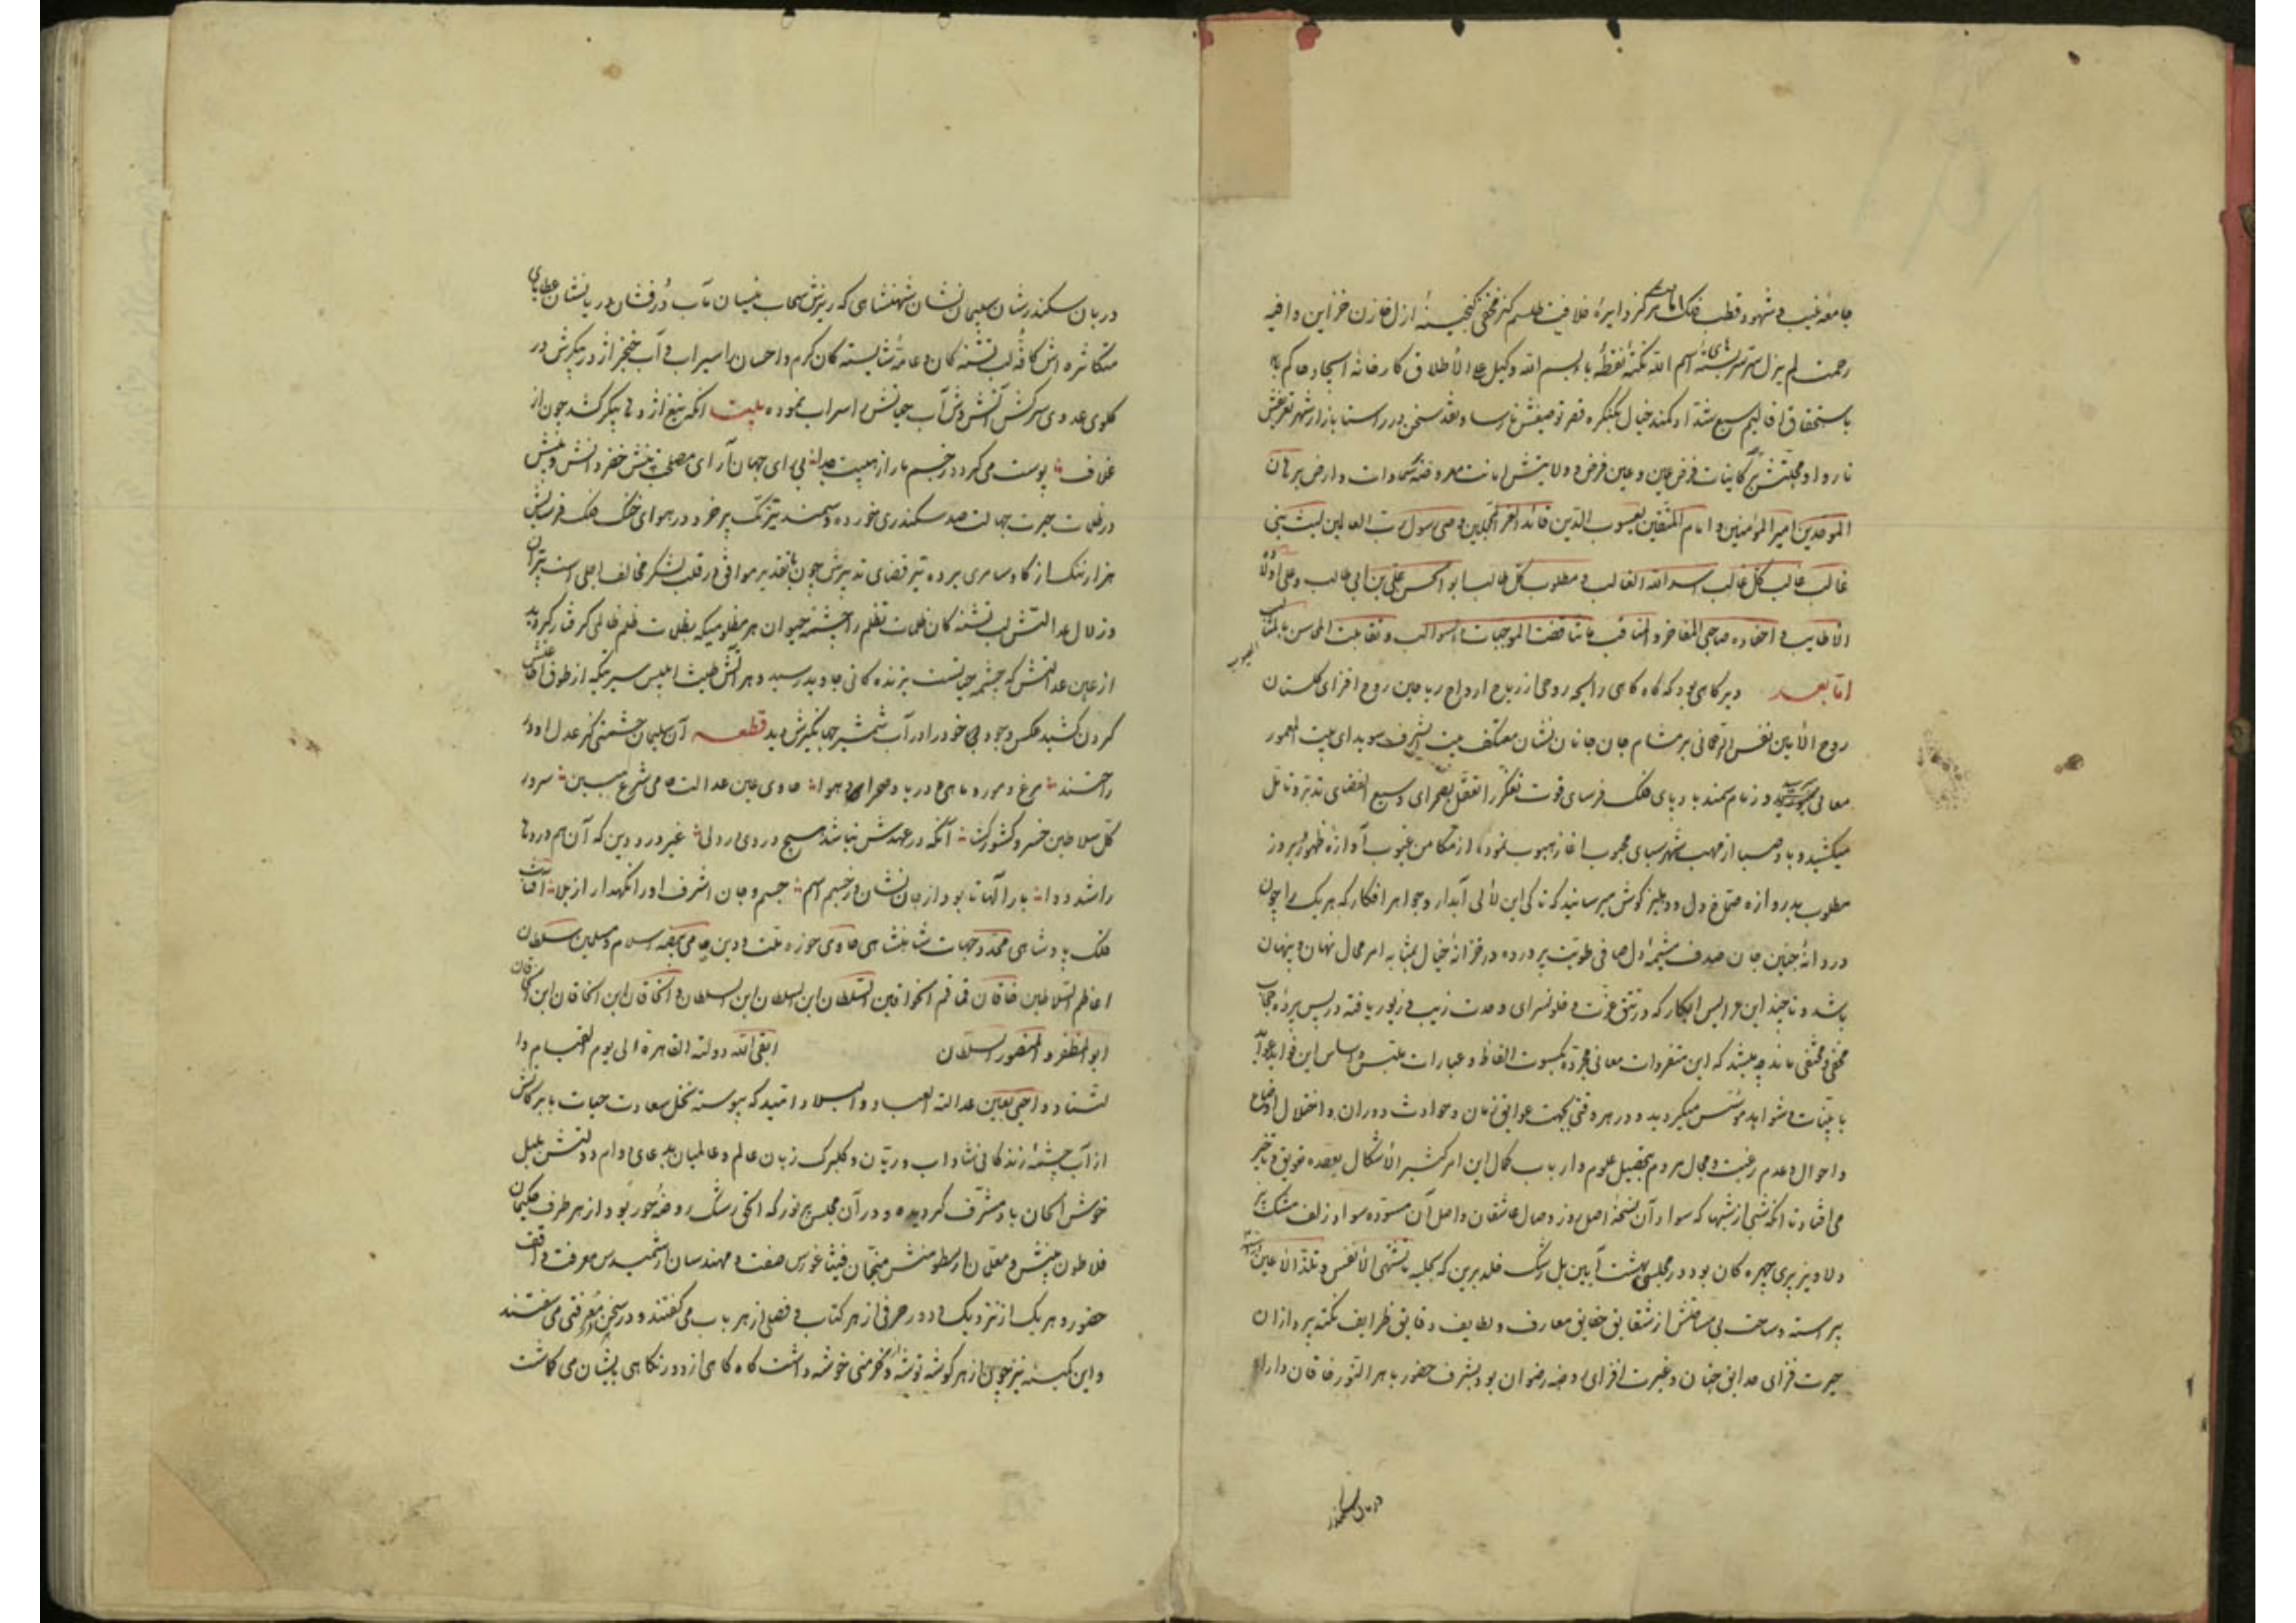 جامعهٔ غیب و شهود قطب فلک امامت مرکز دایرهٔ خلافت طلسم کنز مخفی گنجینهٔ ازل خازن خزاین دافیه
رحمت لم یزل سرّ سربستهٔ اسم الله نکتهٔ نقطهٔ باء بسم الله وکیل علی الاطلاق کارخانهٔ ایجاد حاکم
باستحقاق اقالیم سبع شداد کمند خیال بکنگره قصر توصیفش نارسا و نقد سخن در راستا بازار شهر تعریفش
ناروا و محبتش بر کاینات فرض عین و عین فرض و ولایتش امانت معروضهٔ سماوات و ارض برهان
الموحدین امیر المؤمنین و امام المتقین یعسوب الدین قائد الغر المحجلین وصی رسول رب العالمین لیث بنی
غالب غالب کل غالب اسد الله الغالب و مطلوب کل طالب ابو الحسن علی بن ابی طالب و علی اولاده
الاطایب و احفاده صاحبی المفاخر و المناقب ما تناقضت الموجبات و السوالب و تقابلت المحاسن بالمثالب
امّا بعد دیرگاهی بود که گاه گاهی رایحه روحی از ریاح ارواح ریاحین روح افزای گلستان
روح الامین نفس الرحمانی بر مشام جان جانان نشان معتکف بیت الشرف سویدای بیت المعمور
معانی میرسید و زمام سمند بادپای فلک فرسای قوت تفکر را تعقل بصحرای وسیع الفضای تدبر و تامل
میکشید و باد صبا از مهب شهر سبای محبوب آغاز هبوب نموده از مکامن غیوب آوازه ظهور و بروز
مطلوب بدروازه صماخ دل و دهلیز گوش میرسانید که تا کی این لآلی آبدار و جواهر افکار که هر یک را چون
دردانهٔ جنین جان صدف مشیمهٔ دل صافی طویت پرورده در خزانهٔ خیال بمثابه امر محال نهان و پنهان
باشد و تا چند این عرایس ابکار که در تتق عزت و خلوتسرای وحدت زیب و زیور یافته در پس پردهٔ حجاب
مخفی و مختفی ماند چه میشد که این متفردات معانی مجرده بکسوت الفاظ و عبارات ملتبس و اساس این فواید عواید
با بینات و شواهد مؤسس میگردید و در هر وقتی بجهت عوایق زمان و حوادث دوران و اختلال اوضاع
و احوال و عدم رغبت و مجال مردم بتحصیل علوم و ارباب کمال این امر کثیر الاشکال بعقده تعویق و تاخیر
می افتاد تا آنکه شبی از شبها که سواد آن نسخهٔ اصل روز وصال عاشقان و اصل آن مسوده سواد زلف مشک
دلاویز پری چهره گان بود در مجلسی بهشت آیین بل رشک خلد برین که بحلیه ما تشتهی الانفس و تلذ الاعین
پیراسته و ساحت بی مساحتش از شقایق حقایق معارف و لطایف دقایق ظرایف نکته پردازان
حیرت فزای حدایق جنان و غیرت افزای روضه رضوان بود بشرف حضور باهر النور خاقان دارا
دربان سکندر
دربان سکندرشان سلیمان نشان شهنشاهی که ریزش سحاب نیسان مآب درفشان دریانشان عطایای
متکاثره اش کافهٔ لب تشنه کان و عامهٔ شایسته کان کرم و احسان را سیراب و آب خنجر اژدرپیکرش در
گلوی عدوی سرکش آتش وش آب حیاتش را سراب نموده بیت آنکه تیغ اژدها پیکر کشد چون از
غلاف پوست می گردد در جسم مار از هیبت جدا برای جهان آرای مصلحت بینش خضر دانش و بینش
در ظلمات حیرت جهالت صد سکندری خورده و سمند تیزتک پر خرد در هوای خنک فلک فرسایش
هزار تنگ از گاو سامری برده تیر قضای تدبیرش چون با تقدیر موافق در قلب لشکر مخالف اجلی است پران
و زلال عدالتش لب تشنه کان ظلمات تظلم را چشمه حیوان هر مظلومیکه بظلمات ظلم ظالمی گرفتار گردید
از عین عدالتش که چشمه حیاتست بزنده کانی جاوید رسید و هر آتش طینت ابلیس سیرتیکه از طوق اطاعتش
گردن کشید عکس وجود بی خود را در آب شمشیر جهانگیرش دید قطعه آن سلیمان حشمتی کز عدل او در
راحتند مرغ و مور و ماهی و دریا و صحرا و هوا حاوی عین عدالت حامی شرع مبین سرور
کل سلاطین خسرو کشورگشا آنکه در عهدش نباشد هیچ دردی در دلی غیر درد دین که آن هم درد ما
را شد دوا بار الها تا بود از جان نشان در جسم اسم جسم و جان اشرف او را نگهدار از بلا
فلک پادشاهی محدد جهات شاهنشاهی حاوی حوزه ملت و دین حامی بیضه اسلام و مسلمین سلطان
اعاظم السلاطین خاقان قماقم الخواقین السلطان ابن السلطان ابن السلطان و الخاقان ابن الخاقان ابن الخاقان
ابو المظفر و المنصور السلطان ابقی الله دولته القاهرة الی یوم القیام
و احیی بعین عدالته العباد و البلاد امید که پیوسته نخل سعادت حیات با برکاتش
از آب چشمهٔ زندگانی شاداب و ریان و گلبرگ زبان عالم و عالمیان بدعای دوام دولتش بلبل
خوش الحان باد مشرف گردیده و در آن مجلس پرنور که الحق رشک روضهٔ حور بود از هر طرف حکیمان
فلاطون بینش و معلمان ارسطو منش منجمان فیثاغورس صفت و مهندسان ارشمیدس معرفت واقف
حضور و هر یک از نزدیک و دور حرفی از هر کتاب و فصلی از هر باب می گفتند و در سخن معرفتی می سفتند
و این کمینه نیز چون از هر گوشه توشه و از خرمنی خوشه داشت گاه گاهی از دور نگاهی بایشان می گماشت